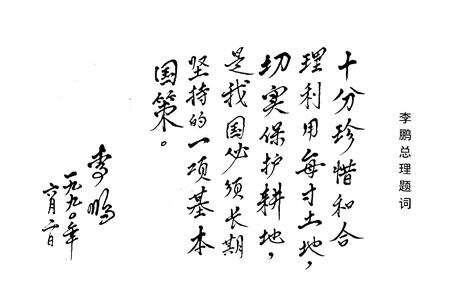 李鹏总理题词
十分珍惜和合
理利用每寸土地，
切实保护耕地，
是我国必须长期
坚持的一项基本
国策。
李鹏
一九九〇年
六月